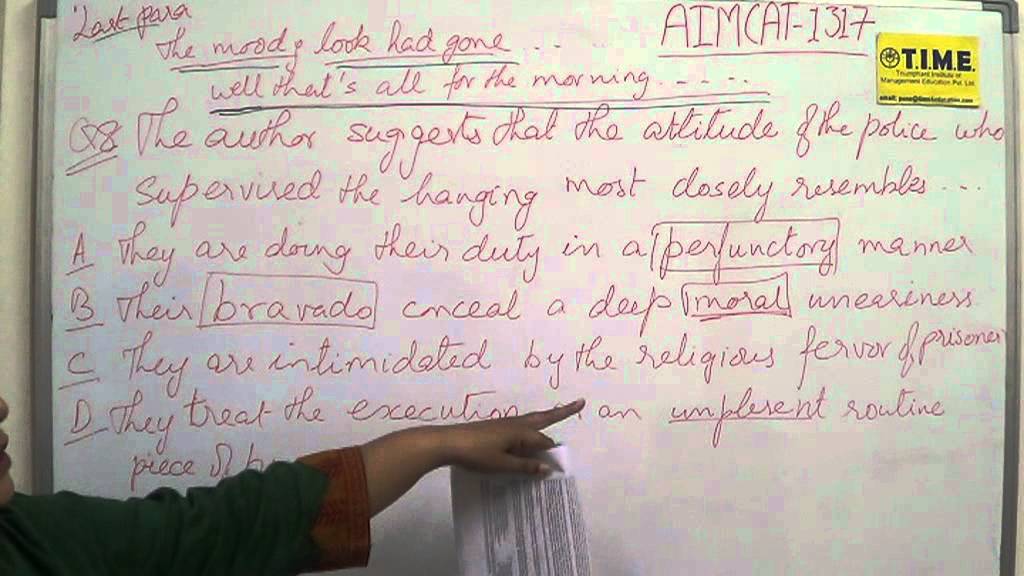 Last para
AIMCAT-1317
The moody look had gone ... ..
well that's all for the morning.......
T.I.M.E.
Triumphant Institute of
Management Education Pvt. Ltd.
Q8 The author suggests that the attitude of the police who
supervised the hanging most closely resembles ...
A They are doing their duty in a perfunctory manner
B Their bravado conceal a deep moral uneariness
C They are intimidated by the religious fervor of prisoner
D They treat the execution an unplesent routine
piece of